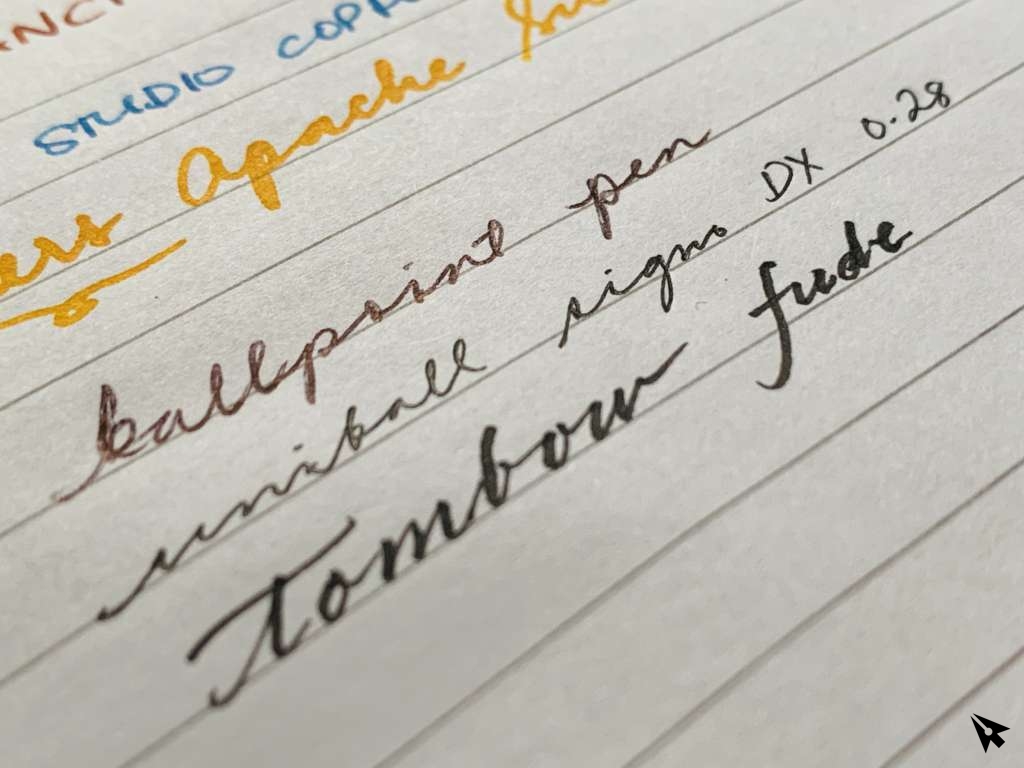 STUDIO
Apache
ballpoint pen
uniball signo DX 0.28
Tombow fude